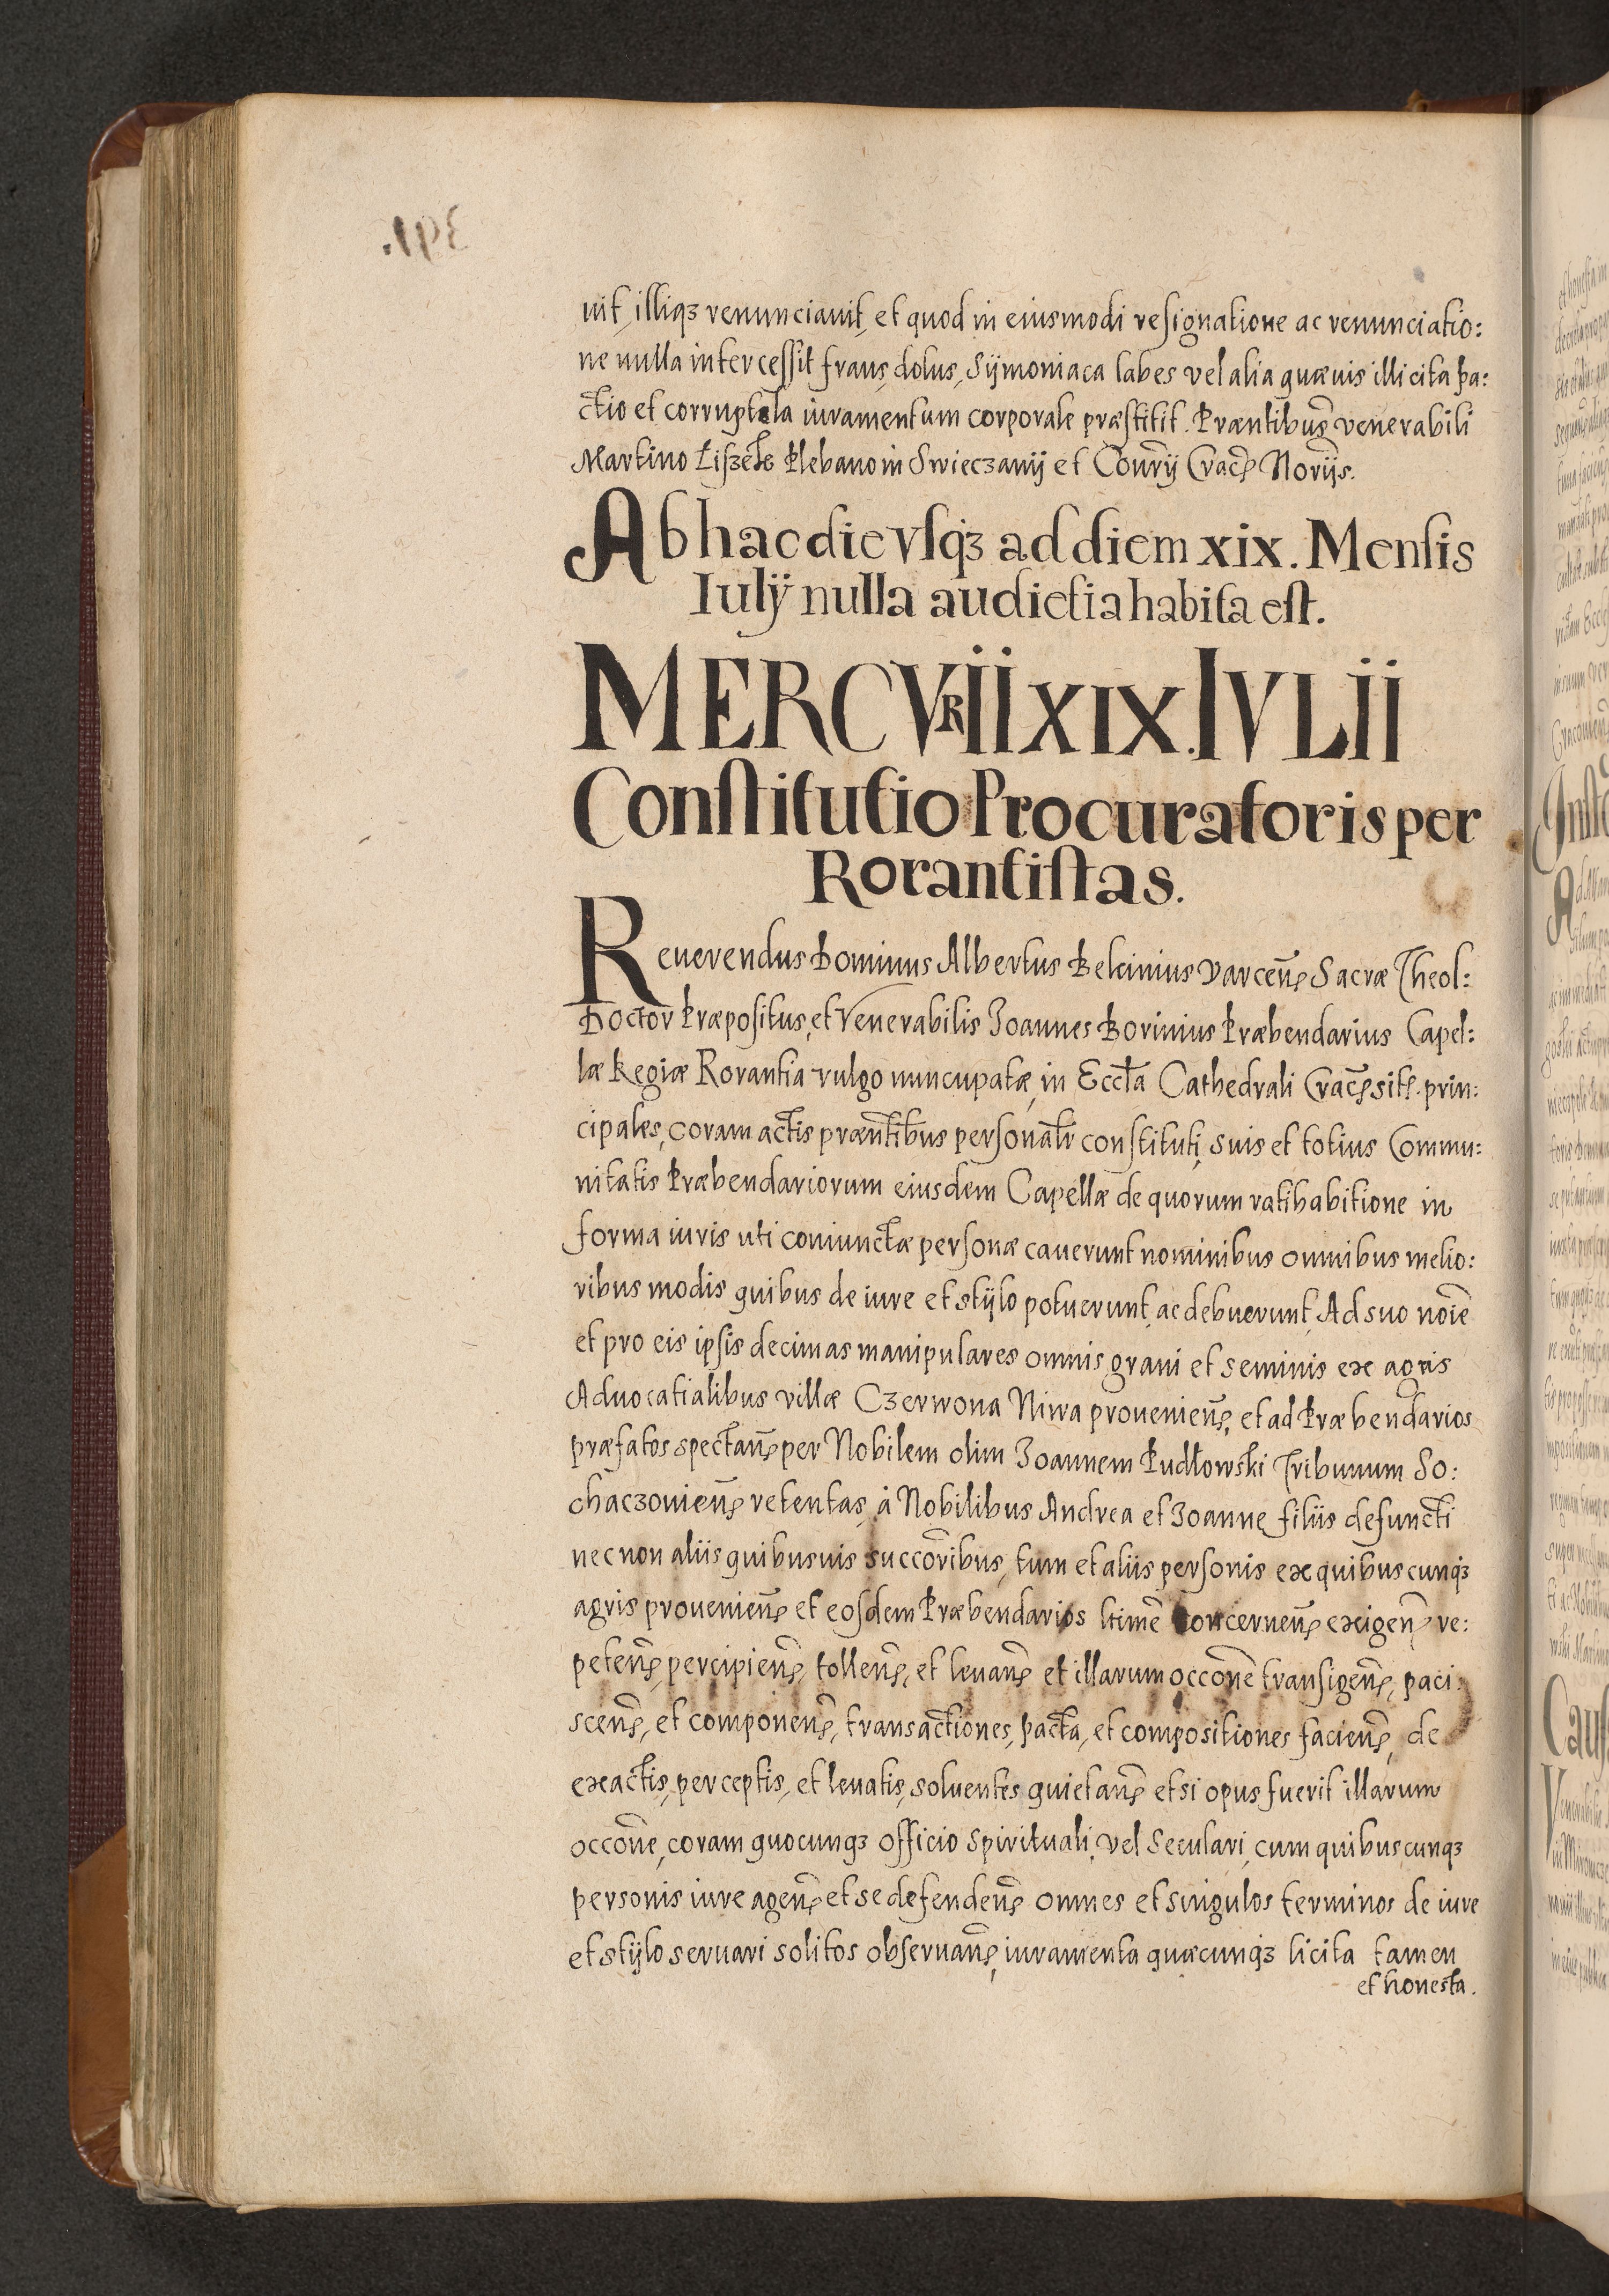 uit, illiqз renunciauit, et quod in eiusmodi resignatione ac renunciatio:
ne nulla intercessit fraus, dolus, Sÿmoniaca labes vel alia quæuis illicita pa:
ctio et corruptela iuramentum corporale præstitit. Præntibus venerabili
Martino Plebano in Swieczanÿ et Cracen̄
Ab hac die vsqз ad diem xix. Mensis
Iulÿ nulla audietia habita est.
MERCVRII XIX. IVLII
Constitutio Procuratoris per
Rorantistas.
Reuerendus Dominus Albertus Belcinius Varcen̄ Sacræ Theol:
Doctor Præpositus, et Venerabilis Joannes Borinius Præbendarius Capel:
læ Regiæ Rorantia vulgo nuncupatæ, in Eccła Cathedrali Cracen̄ sitę. prin:
cipales, coram actis præntibus personalr constituti, suis et totius Commu:
nitatis Præbendariorum eiusdem Capellæ de quorum ratihabitione in
forma iuris uti coniunctæ personæ cauerunt nominibus omnibus melio:
ribus modis quibus de iure et stÿlo potuerunt, ac debuerunt, Ad suo noīe
et pro eis ipsis decimas manipulares omnis grani et seminis ex agris
Aduocatialibus villæ Czerwona Niwa prouenien̄, et ad Præbendarios
præfatos spectan̄ per Nobilem olim Joannem Pudłowski Tribunum So:
chaczouien̄ retentas, à Nobilibus Andrea et Joanne filiis defuncti
nec non aliis quibusuis succōribus, tum et aliis personis ex quibuscunqз
agris prouenien̄ et eosdem Præbendarios łtime concernen̄ exigen̄ re:
peten̄, percipien̄, tollen̄, et leuan̄ et illarum occōne transigen̄, paci:
scen̄, et componen̄, transactiones, pacta, et compositiones facien̄, de
exactis, perceptis, et leuatis, soluentes quietan̄ et si opus fuerit illarum
occōne, coram quocunqз officio spirituali, vel seculari, cum quibuscunqз
personis iure agen̄ et se defenden̄ omnes et singulos terminos de iure
et stÿlo seruari solitos obseruan̄, iuramenta quæcunqз licita tamen
et honesta.